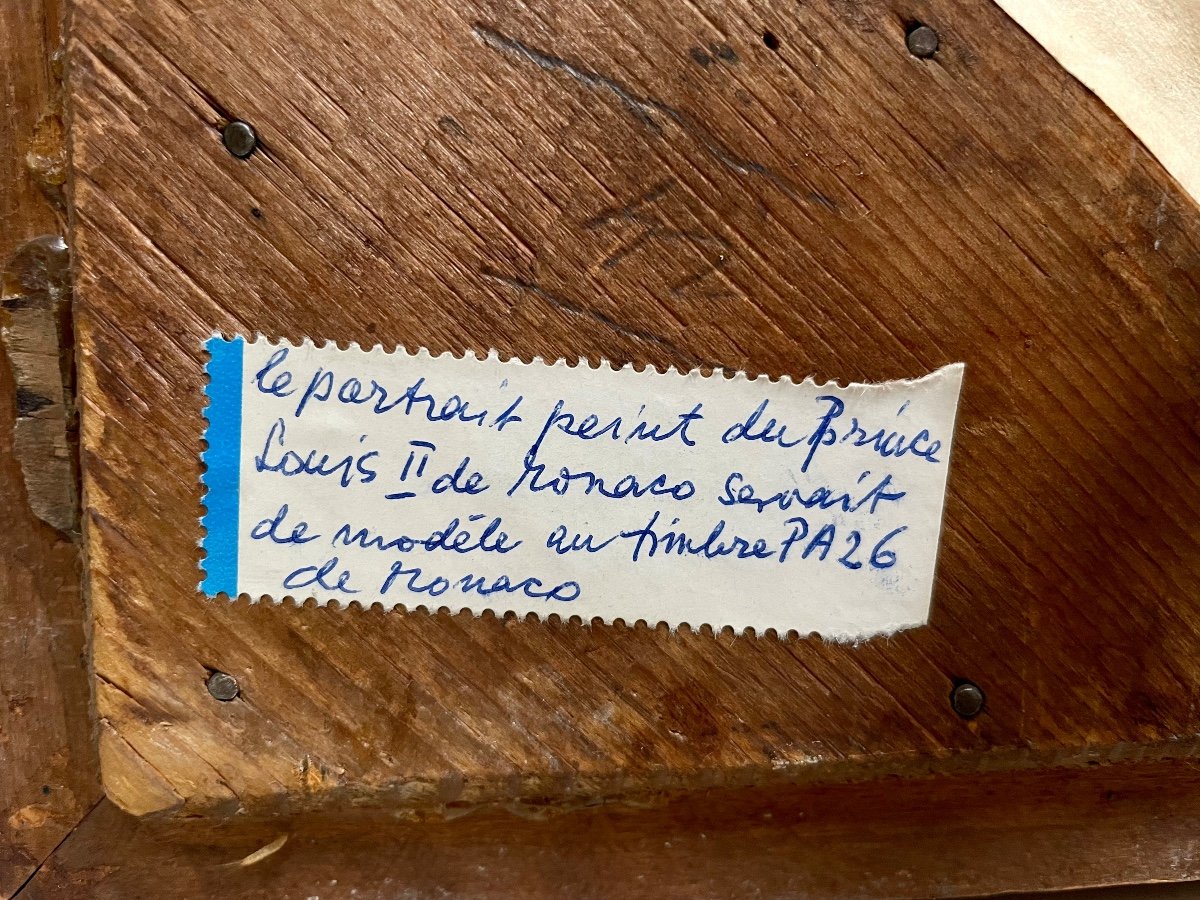 le portrait peint du Prince
Louis II de Monaco servait
de modèle au timbre PA26
de Monaco